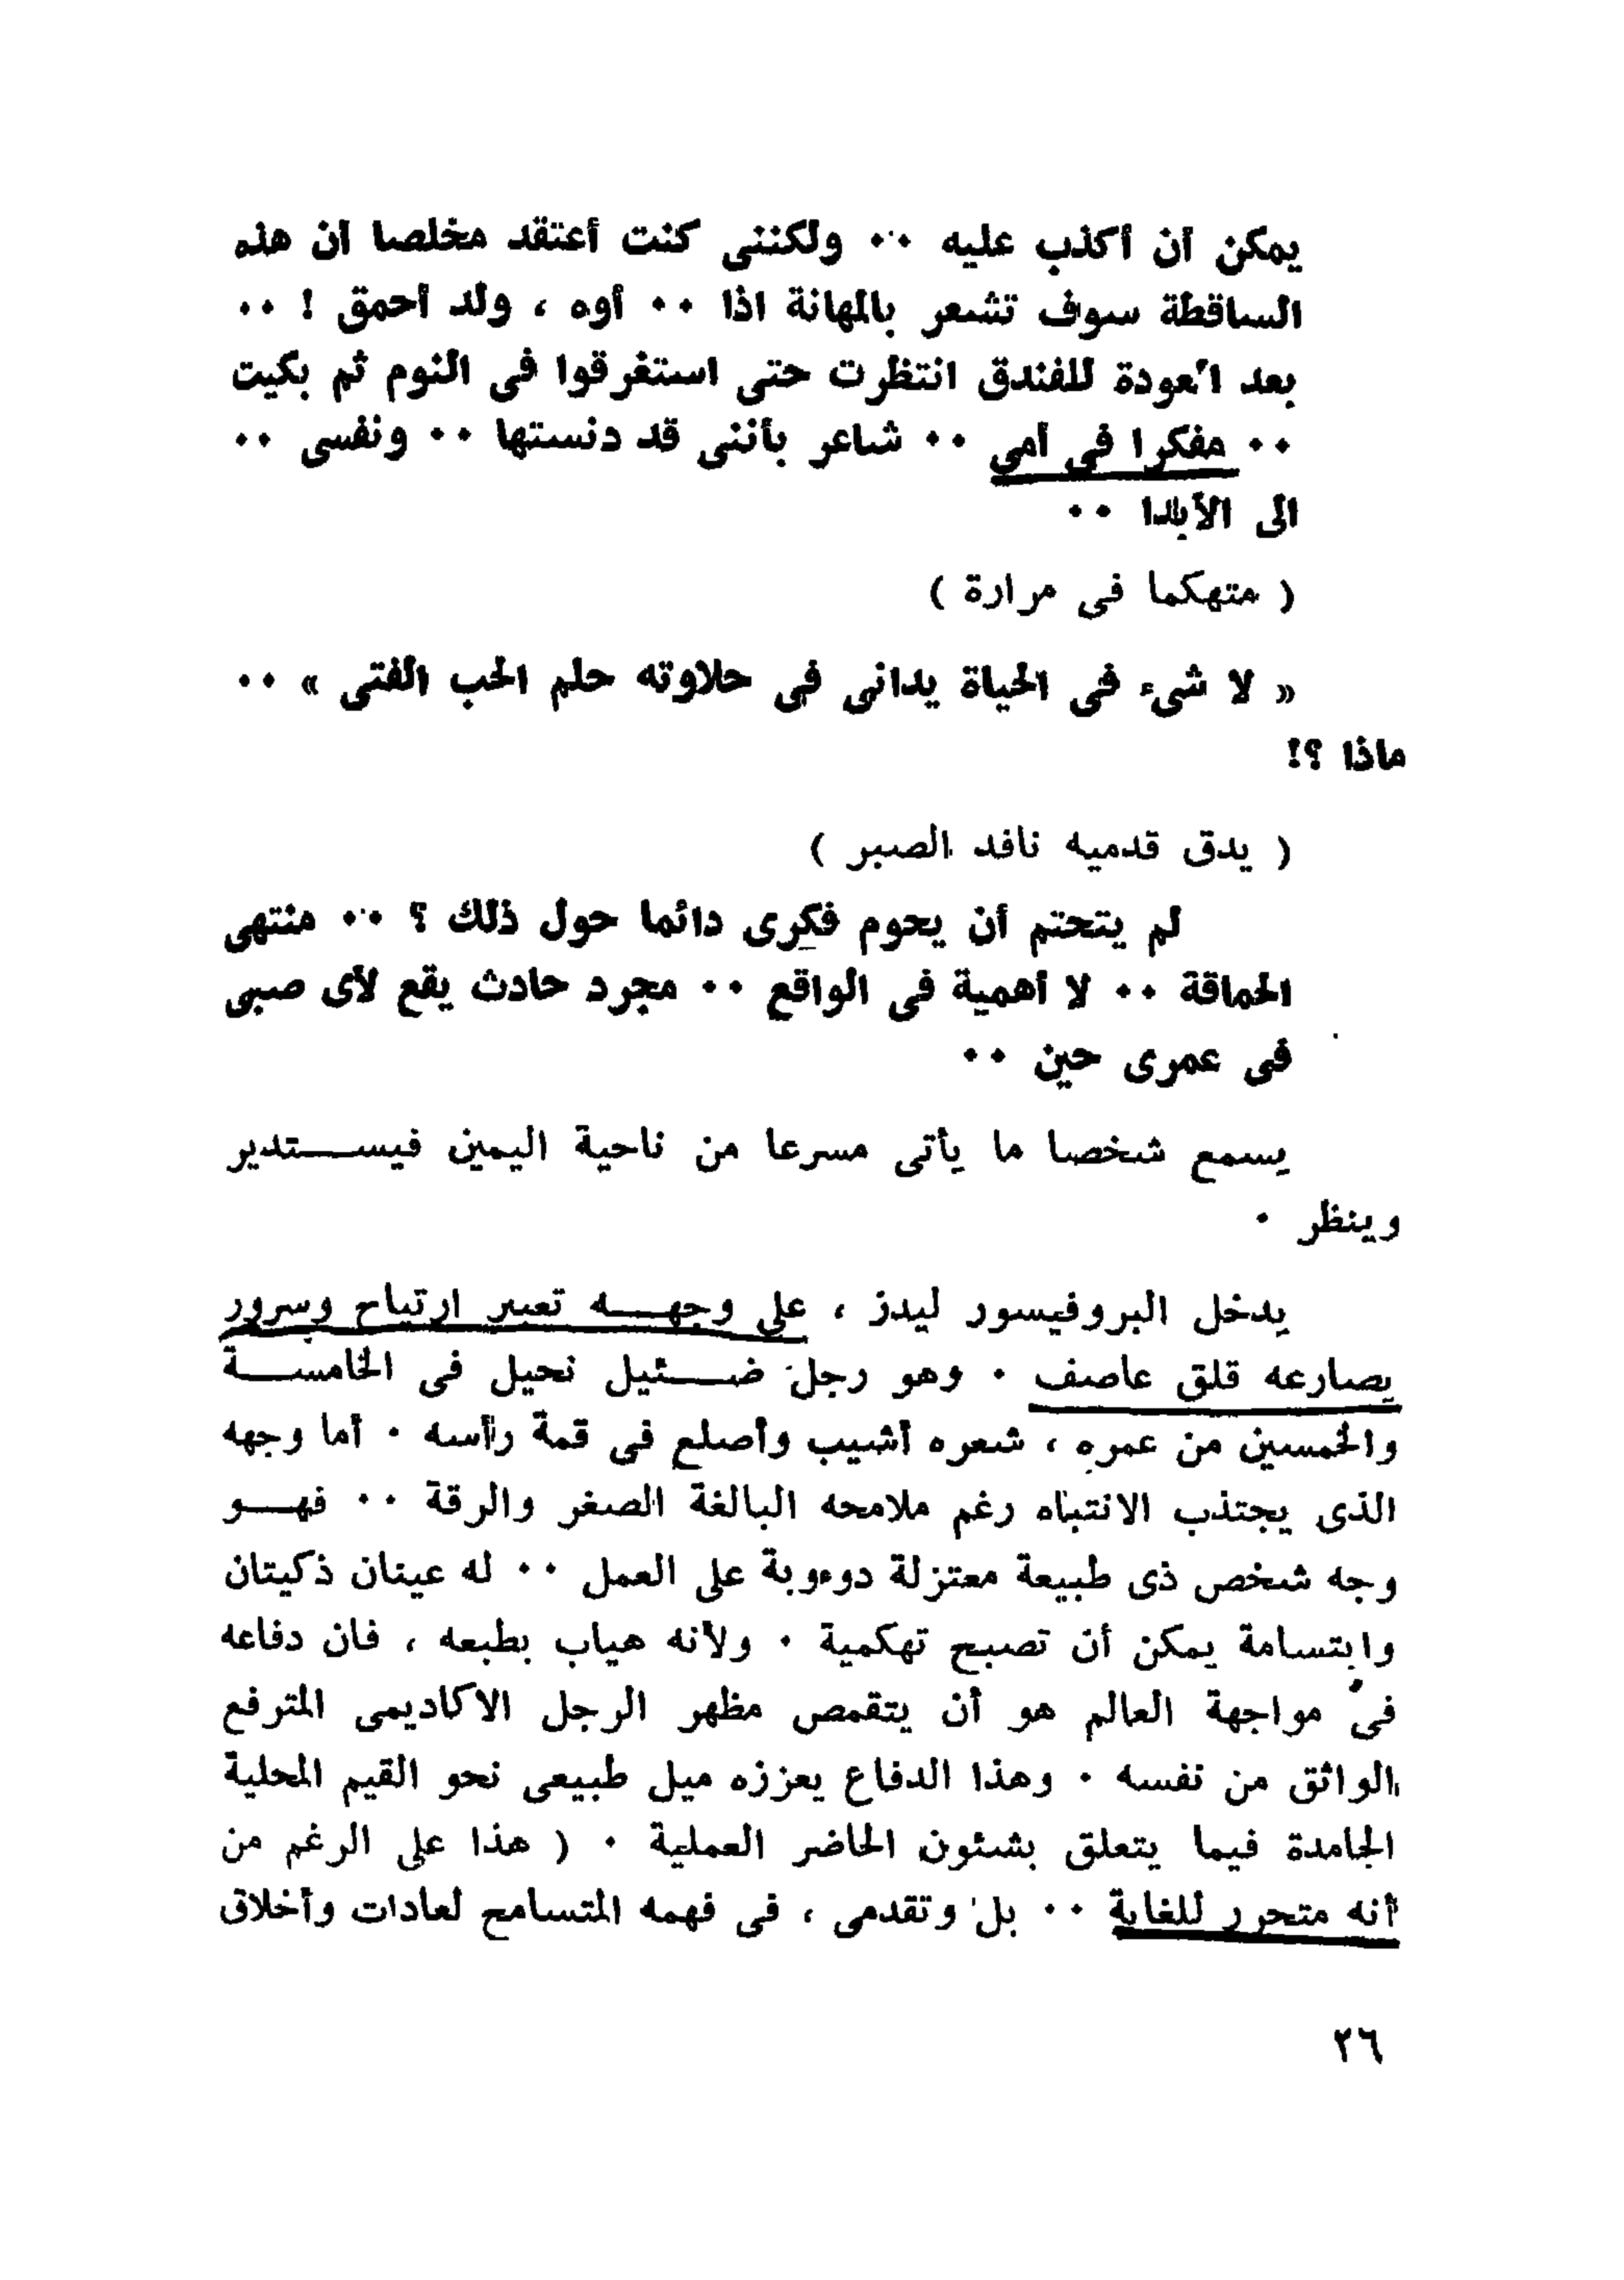 يمكن أن أكذب عليه ٠٠ ولكننى كنت أعتقد مخلصا أن هذه
الساقطة سوف تشعر بالمهانة اذا ٠٠ أوه ، ولد أحمق ! ٠٠
بعد العودة للفندق انتظرت حتى استغرقوا فى النوم ثم بكيت
٠٠ مفكرا فى أمى ٠٠ شاعر بأننى قد دنستها ٠٠ ونفسى ٠٠
الى الأبدا ٠٠
( متهكما فى مرارة )
« لا شىء فى الحياة يدانى فى حلاوته حلم الحب الفتى » ٠٠
ماذا ؟!
( يدق قدميه نافد الصبر )
لم يتحتم أن يحوم فكرى دائما حول ذلك ؟ ٠٠ منتهى
الحماقة ٠٠ لا أهمية فى الواقع ٠٠ مجرد حادث يقع لأى صبى
فى عمرى حين ٠٠
يسمع شخصا ما يأتى مسرعا من ناحية اليمين فيستدير
وينظر ٠
يدخل البروفيسور ليدز ، على وجهه تعبير ارتياح وسرور
يصارعه قلق عاصف ٠ وهو رجل ضئيل نحيل فى الخامسة
والخمسين من عمره ، شعره أشيب وأصلع فى قمة رأسه ٠ أما وجهه
الذى يجتذب الانتباه رغم ملامحه البالغة الصغر والرقة ٠٠ فهو
وجه شخص ذى طبيعة معتزلة دوءوبة على العمل ٠٠ له عينان ذكيتان
وابتسامة يمكن أن تصبح تهكمية ٠ ولأنه هياب بطبعه ، فان دفاعه
فى مواجهة العالم هو أن يتقمص مظهر الرجل الاكاديمى المترفع
الواثق من نفسه ٠ وهذا الدفاع يعززه ميل طبيعى نحو القيم المحلية
الجامدة فيما يتعلق بشئون الحاضر العملية ٠ ( هذا على الرغم من
أنه متحرر للغاية ٠٠ بل وتقدمى ، فى فهمه المتسامح لعادات وأخلاق
٢٦